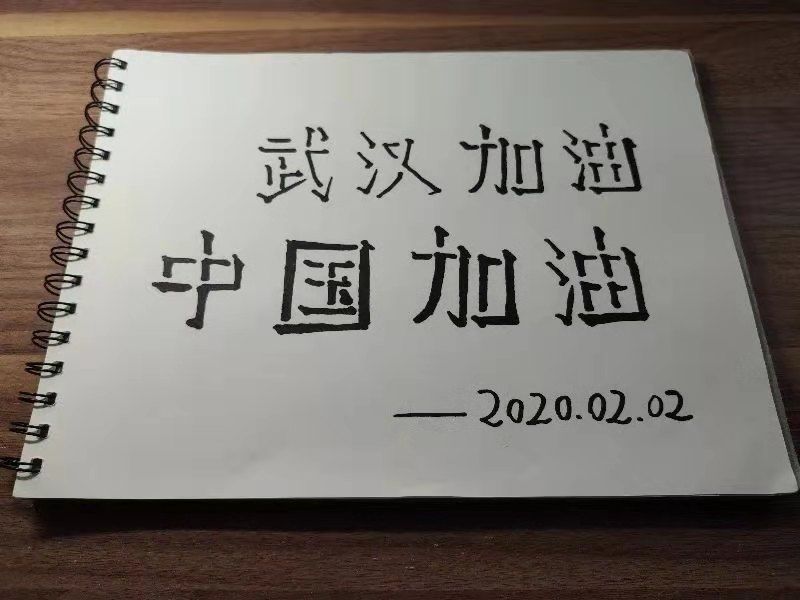 武汉加油
中国加油
——2020.02.02